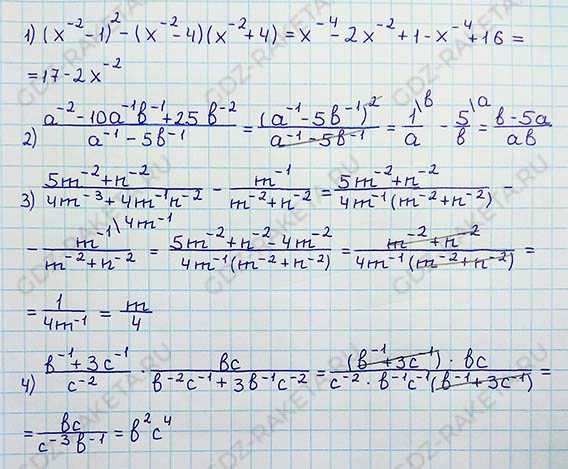 1) (x⁻² - 1)² - (x⁻² - 4)(x⁻² + 4) = x⁻⁴ - 2x⁻² + 1 - x⁻⁴ + 16 =
= 17 - 2x⁻²
2) (a⁻² - 10a⁻¹в⁻¹ + 25в⁻²)/(a⁻¹ - 5в⁻¹) = (a⁻¹ - 5в⁻¹)²/(a⁻¹ - 5в⁻¹) = 1\в/a - 5\a/в = (в - 5a)/(aв)
3) (5m⁻² + n⁻²)/(4m⁻³ + 4m⁻¹n⁻²) - m⁻¹/(m⁻² + n⁻²) = (5m⁻² + n⁻²)/(4m⁻¹(m⁻² + n⁻²)) -
- m⁻¹\4m⁻¹/(m⁻² + n⁻²) = (5m⁻² + n⁻² - 4m⁻²)/(4m⁻¹(m⁻² + n⁻²)) = (m⁻² + n⁻²)/(4m⁻¹(m⁻² + n⁻²)) =
= 1/(4m⁻¹) = m/4
4) (в⁻¹ + 3c⁻¹)/c⁻² · вc/(в⁻²c⁻¹ + 3в⁻¹c⁻²) = ((в⁻¹ + 3c⁻¹) · вc)/(c⁻² · в⁻¹c⁻¹(в⁻¹ + 3c⁻¹)) =
= вc/(c⁻³в⁻¹) = в²c⁴
GDZ-RAKETA.RU